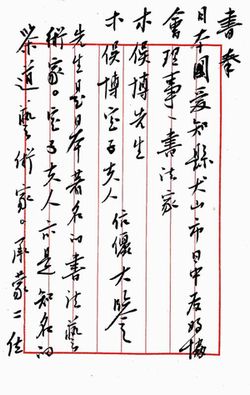 書奉
日本國愛知縣犬山市日中友好協
會理事、書法家
木俣博先生
木俣博定子夫人 伉儷大鑒
先生是日本著名的書法藝
術家。定子夫人亦是知名的
茶道藝術家。承蒙二位